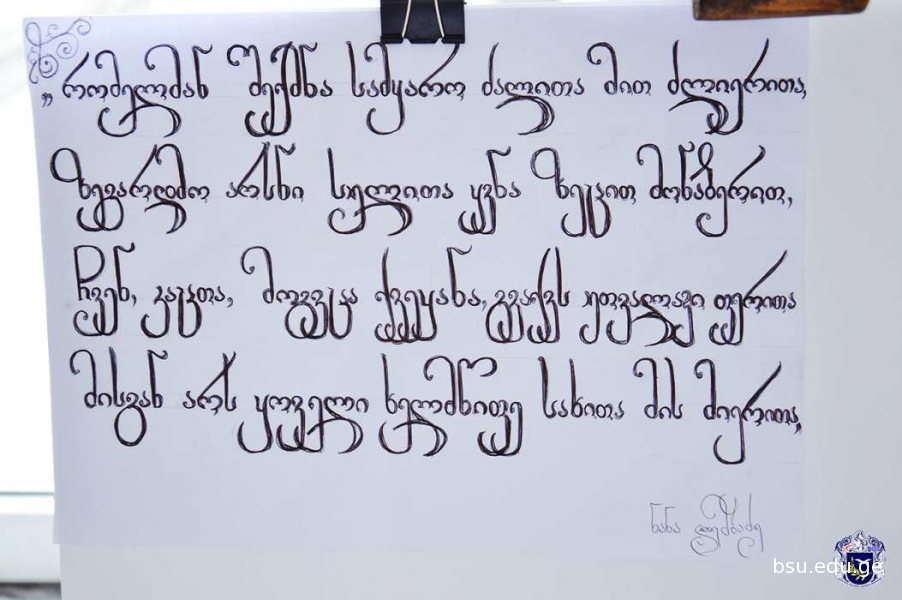 „რომელმან შექმნა სამყარო ძალითა მით ძლიერითა,
ზეგარდმო არსნი სულითა ყვნა ზეცით მონაბერით,
ჩვენ, კაცთა, მოგვცა ქვეყანა, გვაქვს უთვალავი ფერითა
მისგან არს ყოველი ხელმწიფე სახითა მის მიერითა„
ნანა
bsu.edu.ge